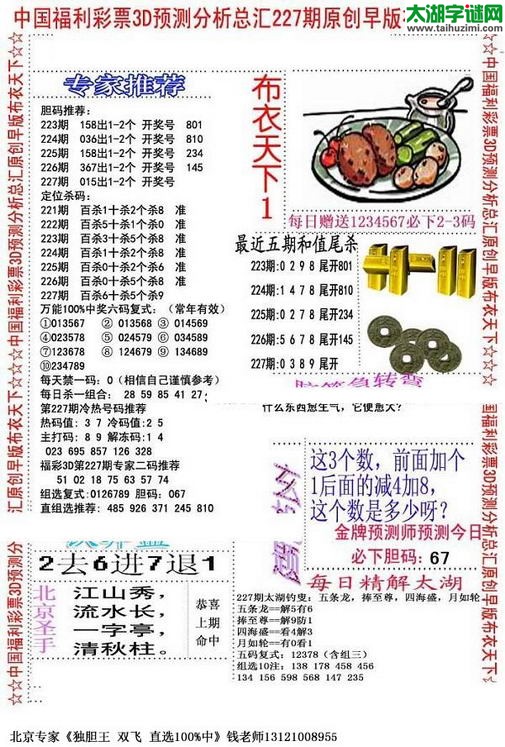 中国福利彩票3D预测分析总汇227期原创早版
太湖字谜网
www.taihuzimi.com
☆☆中国福利彩票3D预测分析总汇原创早版布衣天下☆☆
专家推荐
胆码推荐:
223期 158出1-2个 开奖号 801
224期 036出1-2个 开奖号 810
225期 158出1-2个 开奖号 234
226期 367出1-2个 开奖号 145
227期 015出1-2个 开奖号
定位杀码:
221期 百杀1十杀2个杀8 准
222期 百杀5十杀1个杀0 准
223期 百杀2十杀3个杀4 准
224期 百杀9十杀4个杀3 准
225期 百杀5十杀4个杀8 准
226期 百杀0十杀2个杀6 准
227期 百杀6十杀5个杀9
万能100%中奖六码复式: (常年有效)
①013567 ②013568 ③014569
④023578 ⑤024579 ⑥034578
⑦123678 ⑧124679 ⑨134689
⑩234789
每天禁一码: 0 (相信自己谨慎参考)
每日杀一组合: 28 59 85 41 27
第227期冷热号码推荐
热码值: 3 7 冷码值:2 5
主打码: 8 9 解冻码: 1 4
023 695 857 126 328
福彩3D第227期专家二码推荐
51 02 18 75 63 57 74
组选复式:0126789 胆码: 067
直组选推荐: 485 926 371 245 810
布衣天下1
每日赠送1234567必下2-3码
最近五期和值尾杀
223期:0 2 9 8 尾开801
224期:1 4 7 8 尾开810
225期:0 2 7 8 尾开234
226期:5 6 7 8 尾开145
227期:0 3 8 9 尾开
脑筋急转弯
什么东西愈生气, 它便愈大?
这3个数, 前面加个
1后面的减4加8,
这个数是多少呀?
金牌预测师预测今日
必下胆码: 67
2去6进7退1
北京圣手
江山秀,
流水长,
一字亭,
清秋柱。
恭喜
上期
命中
每日精解太湖
227期太湖钓叟: 五条龙, 捧至尊, 四海盛, 月如轮
五条龙==解5有6
捧至尊==解9防1
四海盛==看4解3
月如轮==有0看1
五码复式: 12378 (含组三)
组选10注: 138 178 458 456
134 156 598 568 147 235
☆☆中国福利彩票3D预测分析总汇原创早版布衣天下☆☆
北京专家《独胆王 双飞 直选100%中》钱老师13121008955